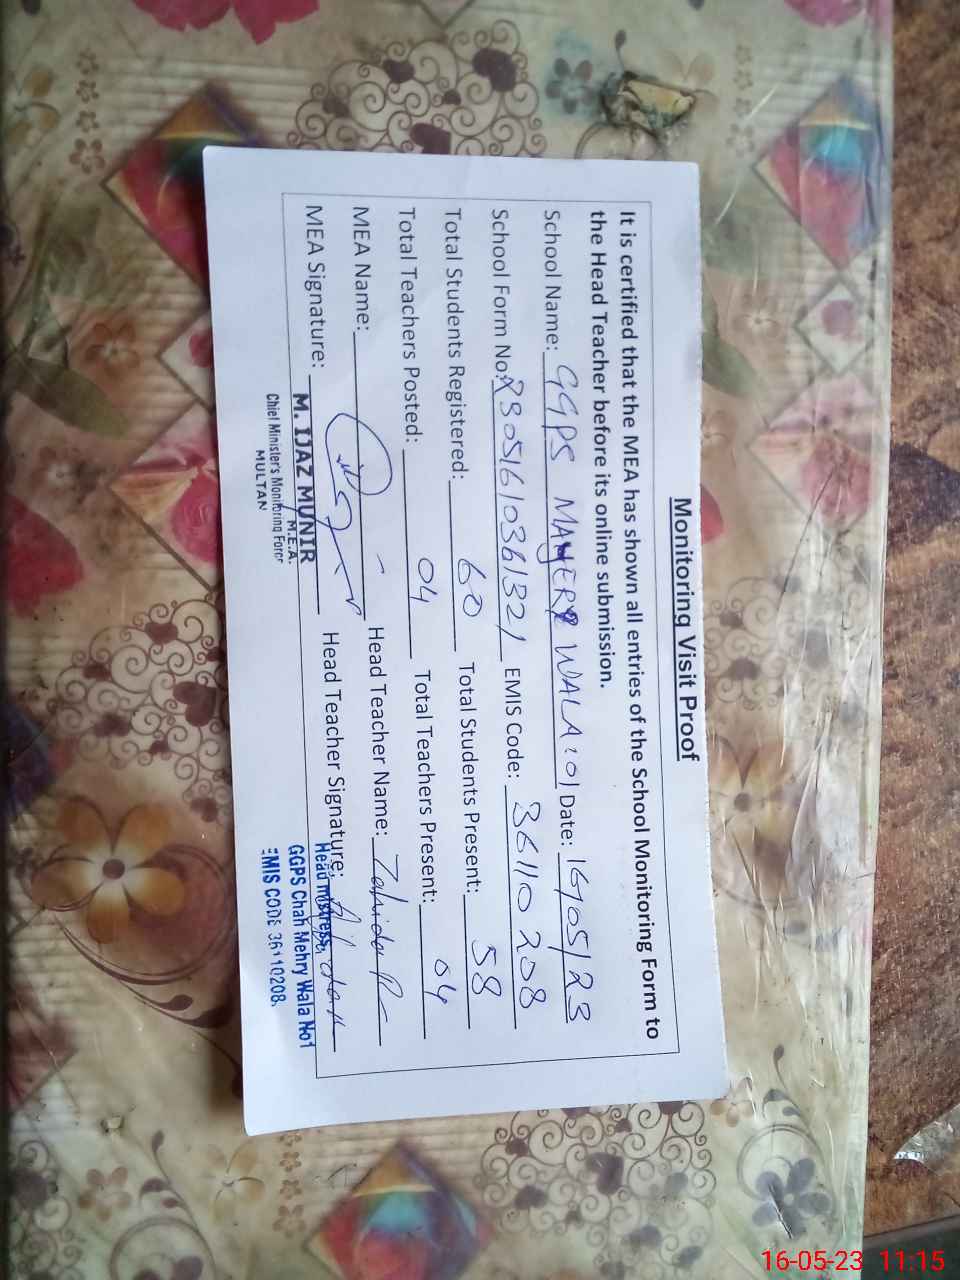 Monitoring Visit Proof
It is certified that the MEA has shown all entries of the School Monitoring Form to
the Head Teacher before its online submission.
School Name: GGPS MAHERY WALA:01 Date: 16/05/23
School Form No: 23051610361321 EMIS Code: 36110208
Total Students Registered: 60 Total Students Present: 58
Total Teachers Posted: 04 Total Teachers Present: 04
MEA Name: Head Teacher Name: Zahida
MEA Signature: Head Teacher Signature:
M. IJAZ MUNIR
M.E.A.
Chief Minister's Monitoring Force
MULTAN
Head mistress,
GGPS Chah Mehry Wala No1
EMIS CODE 36110208.
16-05-23 11:15